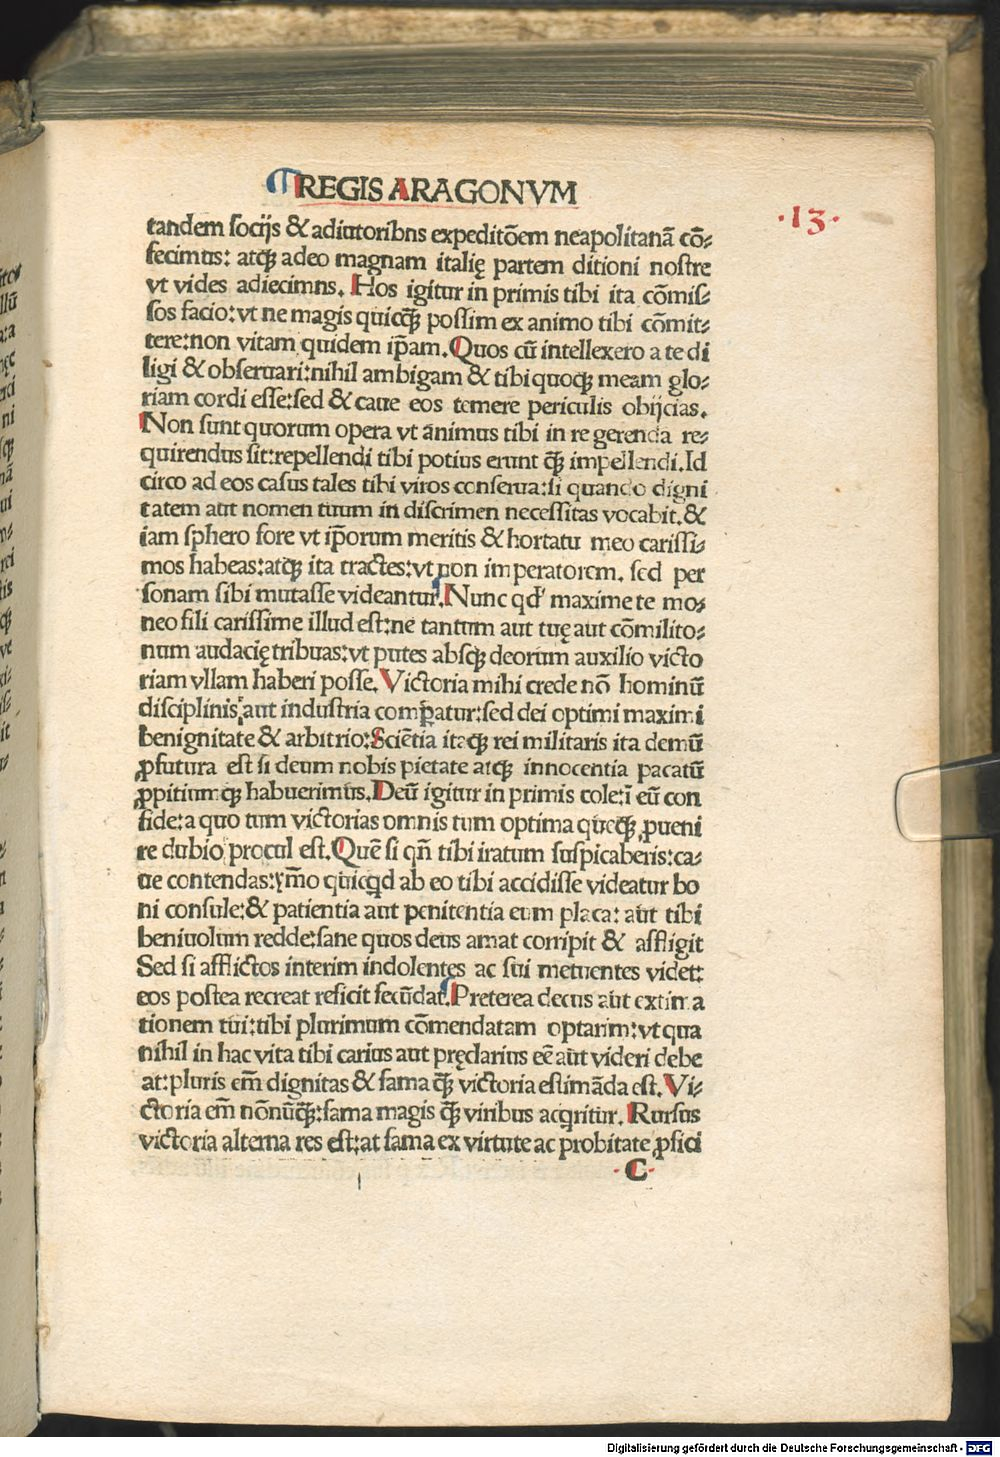 REGIS ARAGONVM
·13·
tandem socijs & adiutoribns expeditõem neapolitanã cõ⸗
fecimus: atq; adeo magnam italię partem ditioni nostre
vt vides adiecimns. Hos igitur in primis tibi ita cõmis⸗
sos facio: vt ne magis quicq̃; possim ex animo tibi cõmit⸗
tere: non vitam quidem ip̃am. Quos cũ intellexero a te di
ligi & obseruari: nihil ambigam & tibi quoq; meam glo⸗
riam cordi esse: sed & caue eos temere periculis obijcias.
Non sunt quorum opera vt animus tibi in re gerenda re⸗
quirendus sit: repellendi tibi potius erunt q̃; impellendi. Id
circo ad eos casus tales tibi viros conserua: si quando digni
tatem aut nomen tuum in discrimen necessitas vocabit. &
iam sphero fore vt ip̃orum meritis & hortatu meo carissi⸗
mos habeas: atq; ita tractes: vt non imperatorem. sed per
sonam sibi mutasse videantur. Nunc qd' maxime te mo⸗
neo fili carissime illud est: ne tantum aut tuę aut cõmilito⸗
num audacię tribuas: vt putes absq; deorum auxilio victo
riam vllam haberi posse. Victoria mihi crede nõ hominũ
disciplinis aut industria comꝑatur: sed dei optimi maximi
benignitate & arbitrio: Sciẽtia itaq; rei militaris ita demũ
ꝓfutura est si deum nobis pietate atq; innocentia pacatũ
ꝓpitiumq; habuerimus. Deũ igitur in primis cole: ĩ eũ con
fide: a quo tum victorias omnis tum optima quęq; ꝓueni
re dubio procul est. Quẽ si qñ tibi iratum suspicaberis: ca⸗
ue contendas: ym̃o quicqd ab eo tibi accidisse videatur bo
ni consule: & patientia aut penitentia eum placa: aut tibi
beniuolum redde: sane quos deus amat corripit & affligit
Sed si afflictos interim indolentes ac sui metuentes videt:
eos postea recreat reficit secũdat. Preterea decus aut extima
tionem tui: tibi plurimum cõmendatam optarim: vt qua
nihil in hac vita tibi carius aut pręclarius eẽ aut videri debe
at: pluris em̃ dignitas & fama q̃; victoria estimãda est. Vi⸗
ctoria em̃ nõnũq̃;: fama magis q̃; viribus acqritur. Rursus
victoria alterna res est: at fama ex virtute ac probitate ꝓfici
·C·
Digitalisierung gefördert durch die Deutsche Forschungsgemeinschaft - DFG